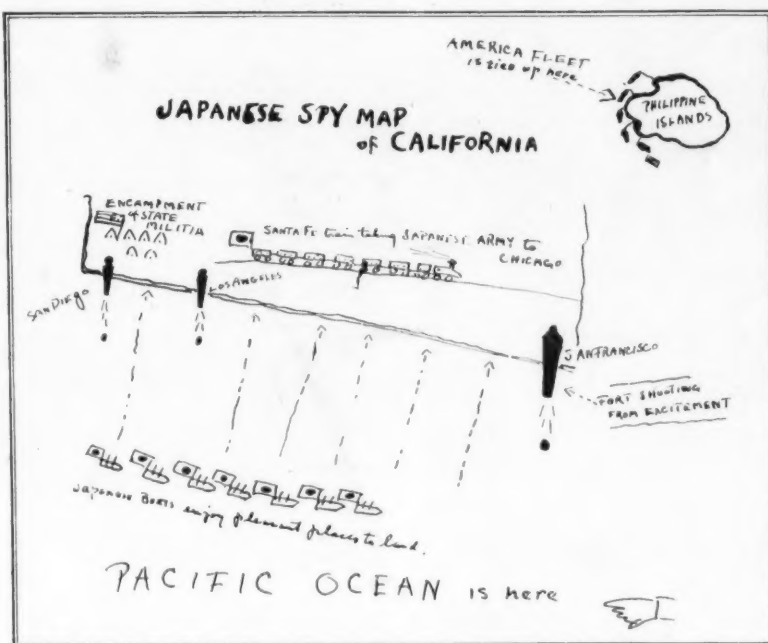 AMERICA FLEET
is tied up here
PHILIPPINE
ISLANDS
JAPANESE SPY MAP
of CALIFORNIA
ENCAMPMENT
of STATE
MILITIA
SANTA Fe train taking JAPANESE ARMY to
CHICAGO
SAN DIEGO
LOS ANGELES
SAN FRANCISCO
FORT SHOOTING
FROM EXCITEMENT
Japanese Boats enjoy pleasant places to land.
PACIFIC OCEAN is here